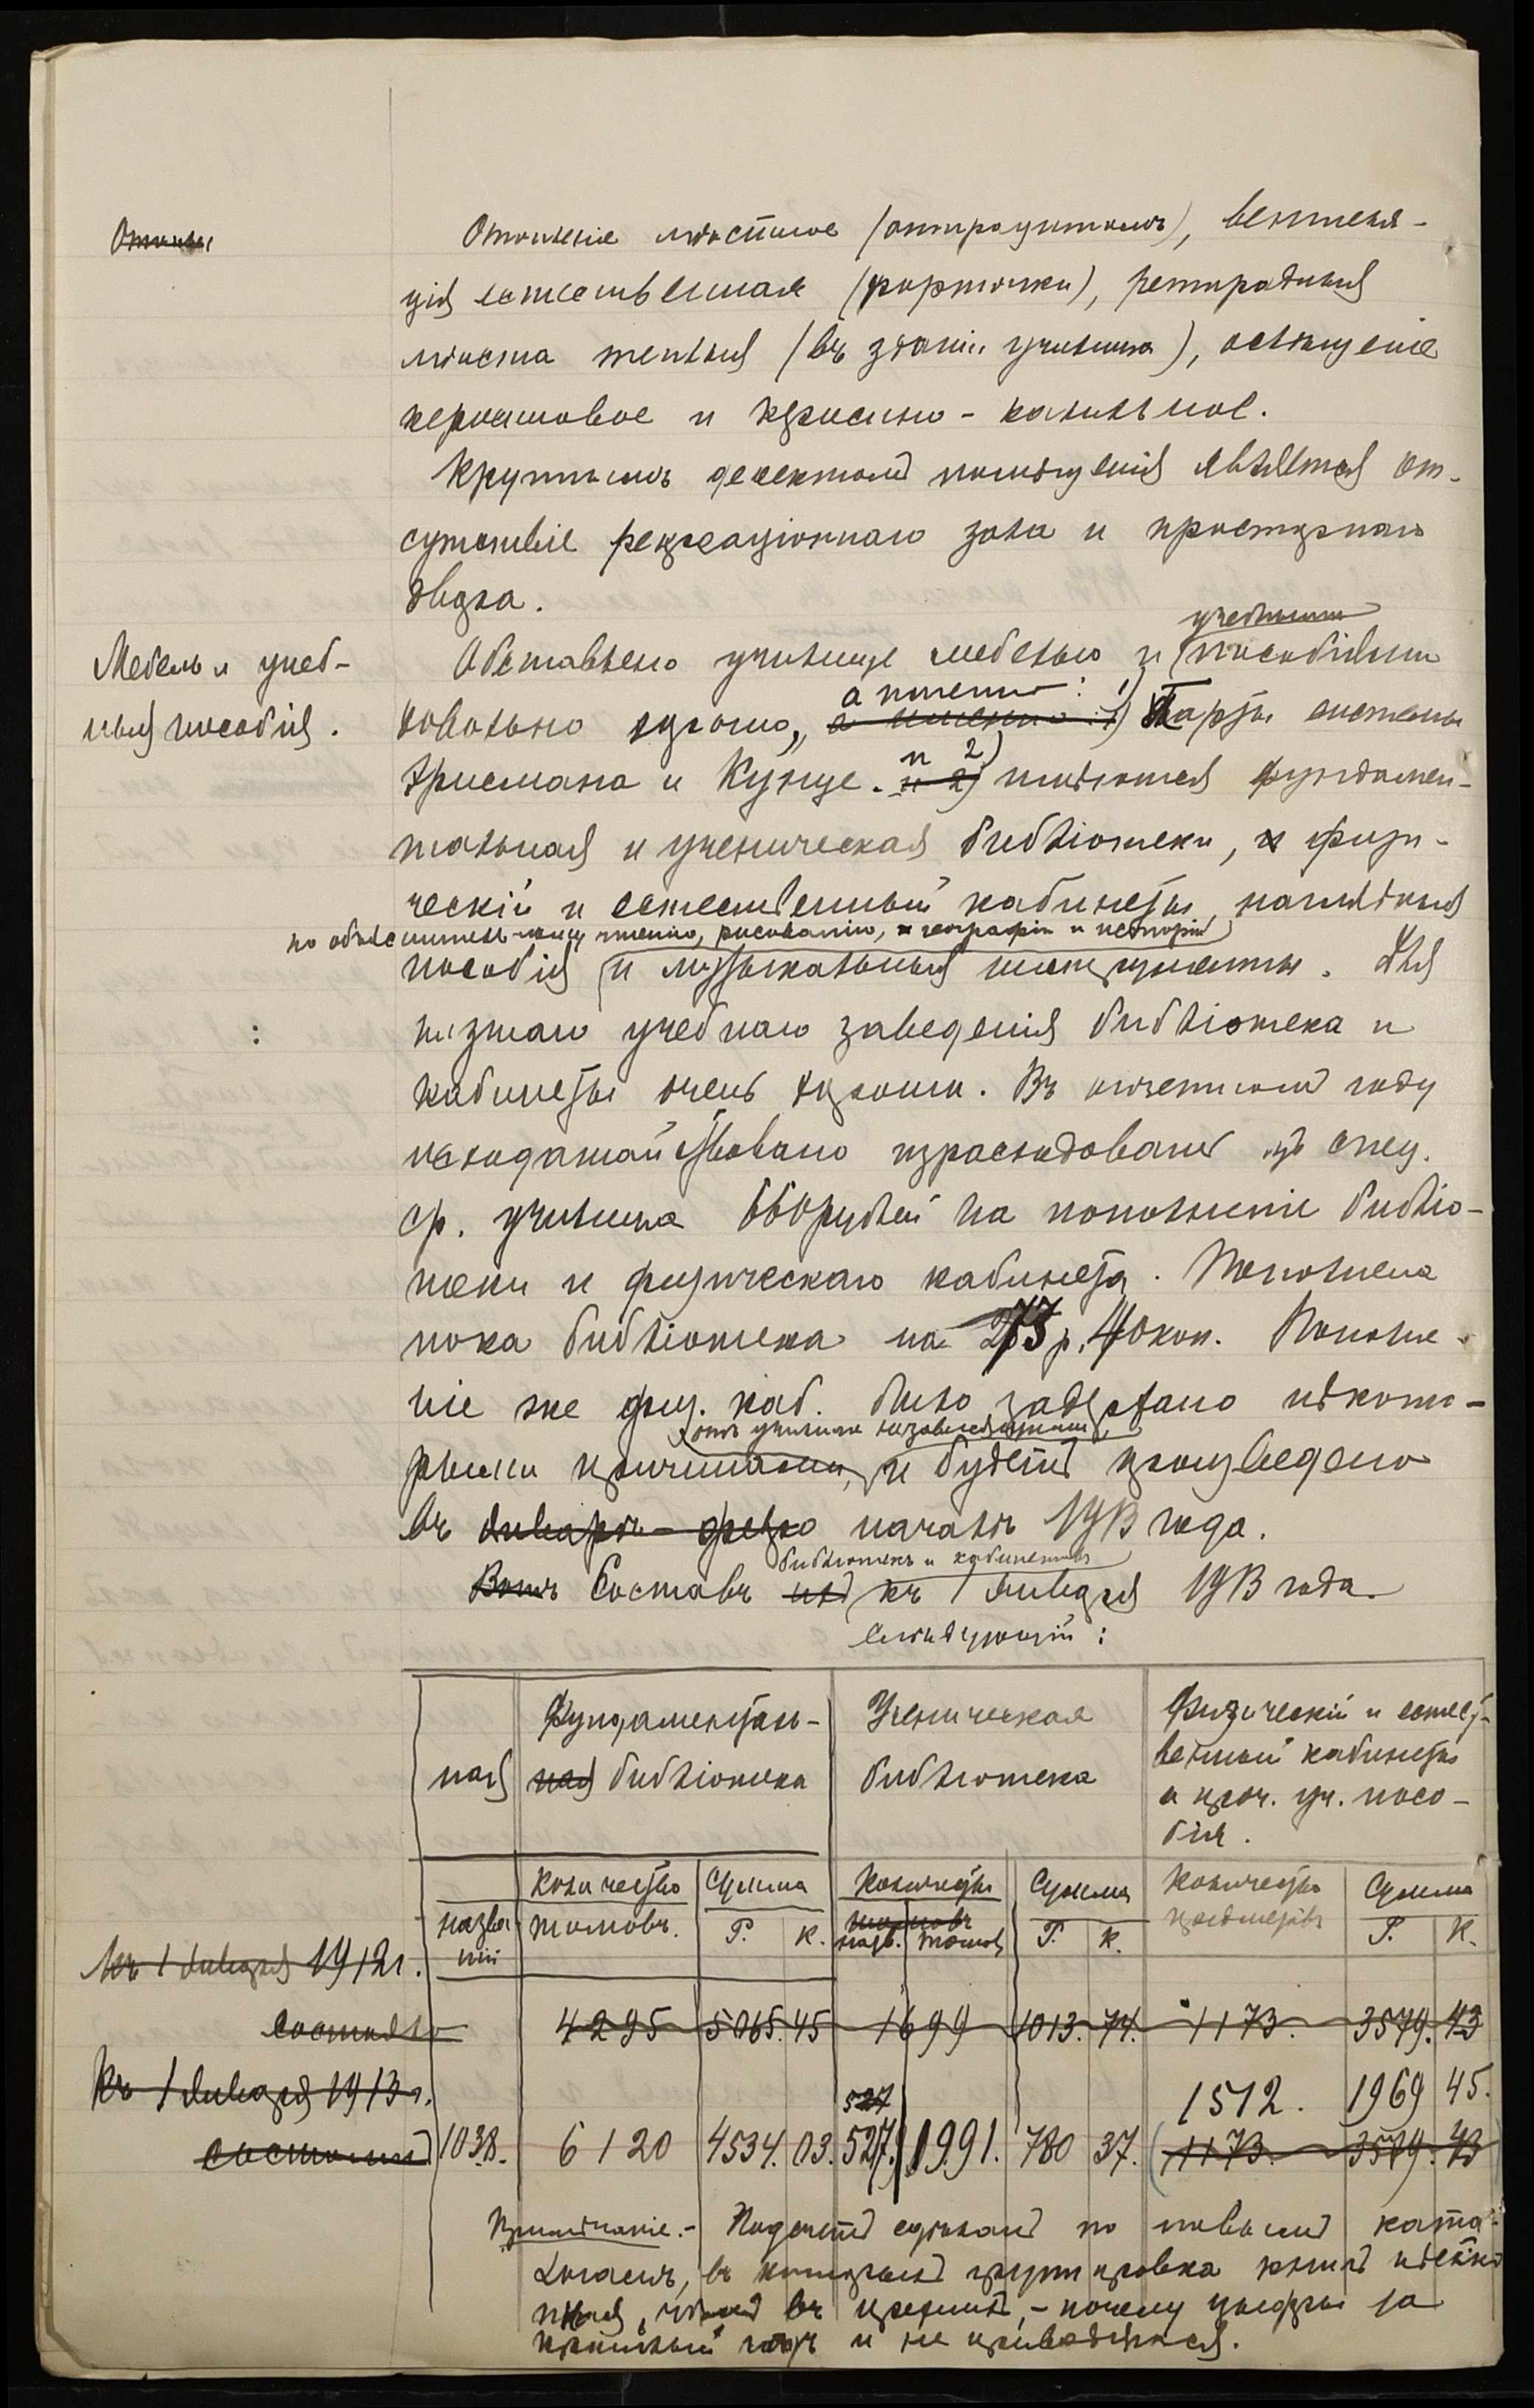 Отопленіе мѣстное (антрацитомъ), вентиля-
ція естественная (форточки), ретирадныя
мѣста теплыя (въ зданіи училища), освѣщеніе
керосиновое и керосино-калильное.
Крупнымъ дефектомъ помѣщенія является от-
сутствіе рекреаціоннаго зала и просторнаго
двора.
Мебель и учеб-
ныя пособія.
учебными
Обставлено училище мебелью и пособіями
а именно: 1)
довольно хорошо, а именно: 1) Парты системы
и 2)
Эрисмана и Кунце. и 2) имѣются фундамен-
тальная и ученическая библіотеки, и физи-
ческій и естественный кабинеты, наглядныя
по объяснительному чтенію, рисованію, и географіи и исторіи
пособія и музыкальныя инструменты. Для
низшаго учебнаго заведенія библіотека и
кабинеты очень хороши. Въ отчетномъ году
исходатайствовано израсходовать изъ спец.
ср. училища 660 рублей на пополненіе библіо-
теки и физическаго кабинета. Пополнена
пока библіотека на 273 р. 40 коп. Пополне-
ніе же физ. каб. было задержано нѣкото-
отъ училища независящими
рыми причинами, и будетъ произведено
въ январѣ - февр началѣ 1913 года.
библіотекъ и кабинетовъ
Вотъ Составъ ихъ къ 1 января 1913 года
слѣдующій:
Фундаменталь-
ная ная библіотека
Ученическая
библіотека
Физическій и естест-
венный кабинеты
и проч. уч. посо-
бія.
назва-
ній
Количество
томовъ.
Сумма
Р. К.
Количество
томовъ
назв. томовъ
Сумма
Р. К.
Количество
предметовъ
Сумма
Р. К.
Къ 1 Января 1912 г.
состояло 4295 5065. 45 1699 1013. 74. 1173. 3579. 43
Къ 1 Января 1913 г.
527 1512. 1969 45.
состоитъ 1038. 6120 4534. 03. 527. 1991. 780 37. 1173. 3579. 43
Примѣчаніе. - Подсчетъ сдѣланъ по новымъ ката-
логамъ, въ которыхъ группировка книгъ нѣсколько
иная, чѣмъ въ прежнихъ, - почему цифры за
прошлый годъ и не приводятся.